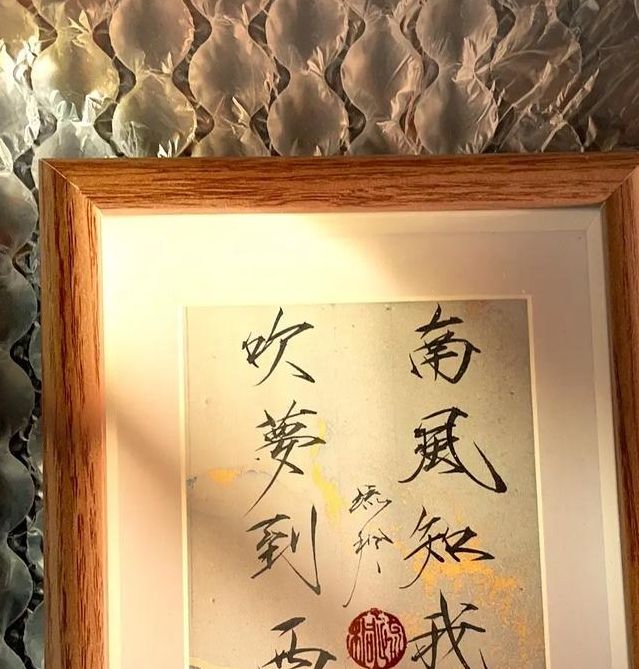 南風知我
吹夢到西